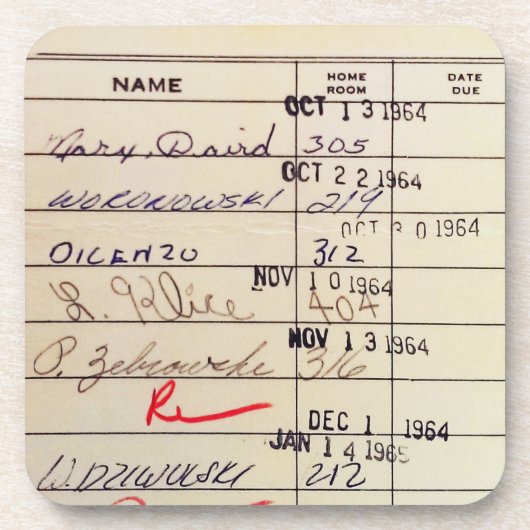 NAME HOME ROOM DATE DUE
OCT 13 1964
Mary Daird 305
OCT 22 1964
WORONOWSKI 219
OCT 30 1964
DILENZO 312
NOV 10 1964
L. Klice 404
NOV 13 1964
P. Zebrowski 316
DEC 1 1964
JAN 14 1965
W. DZIWULSKI 212